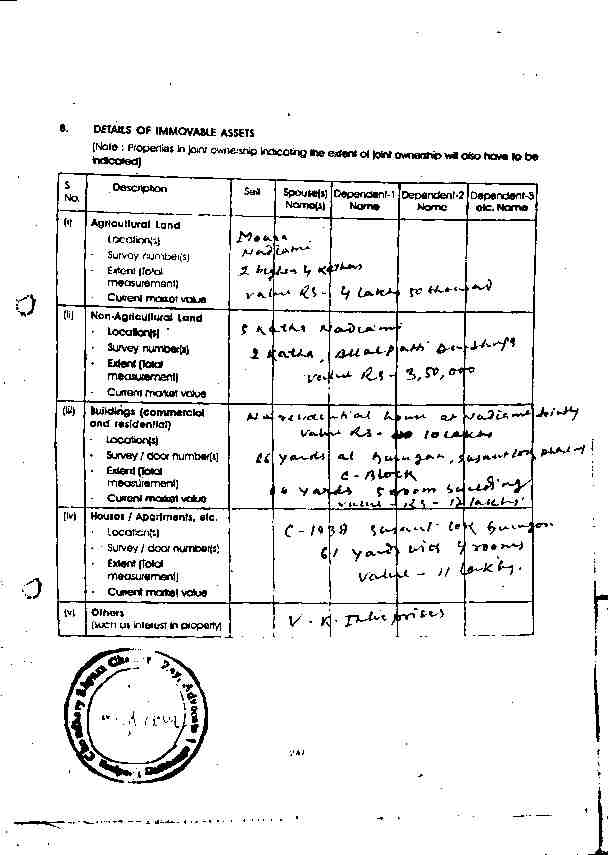 B. DETAILS OF IMMOVABLE ASSETS
(Note : Properties in joint ownership indicating the extent of joint ownership will also have to be indicated)
S No. Description Self Spouse(s) Name(s) Dependent-1 Name Dependent-2 Name Dependent-3 etc. Name
(i) Agricultural Land
- Location(s)
- Survey number(s)
- Extent (Total measurement)
- Current market value
2 bighas 4 Kathas
value RS- 4 lakhs 50 thousand
(ii) Non-Agricultural Land
- Location(s)
- Survey number(s)
- Extent (Total measurement)
- Current market value
5 Katha Nadiami
2 Katha,
value RS - 3,50,000
(iii) Buildings (commercial and residential)
- Location(s)
- Survey / door number(s)
- Extent (Total measurement)
- Current market value
residential house at Nadiame jointly
value RS- 10 lakhs
yards at
C-Block
yards 5 room building
value - RS - 12 lakhs
(iv) Houses / Apartments, etc.
- Location(s)
- Survey / door number(s)
- Extent (Total measurement)
- Current market value
61 yards with 4 rooms
value - 11 lakhs.
(v) Others
(such as interest in property)
V. K. Enterprises